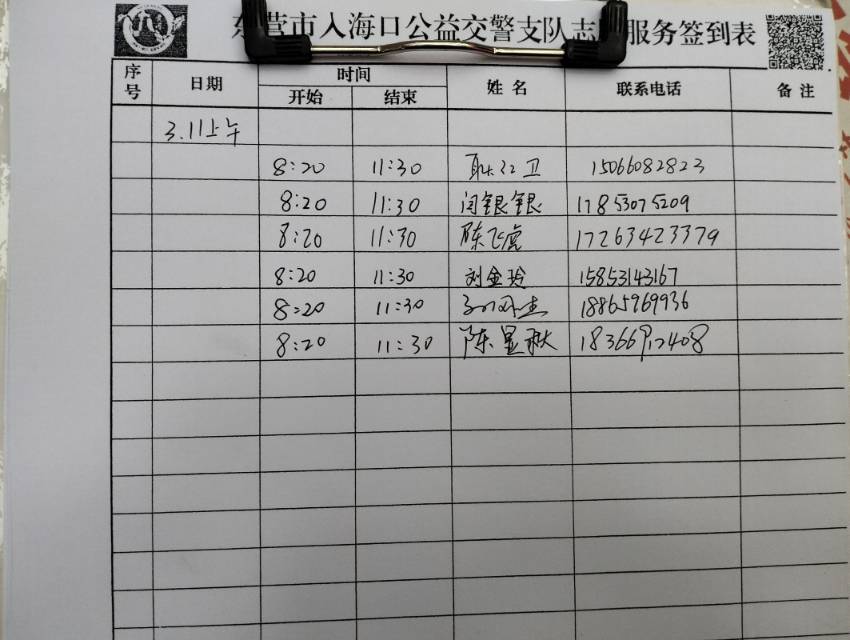 东营市入海口公益交警支队志 服务签到表
序号 日期 时间 姓名 联系电话 备注
开始 结束
3.11上午
8:20 11:30 耿红卫 15066082823
8:20 11:30 闫银银 17853075209
8:20 11:30 陈飞虎 17263423379
8:20 11:30 刘金玲 15853143167
8:20 11:30 18865969936
8:20 11:30 陈显秋